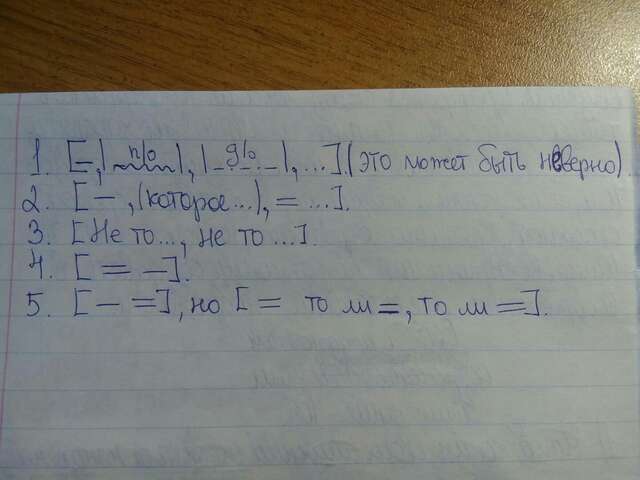 1. [—, |п/о|, |д/о|, ...]. (это может быть неверно)
2. [—, (которое...), = ...].
3. [Не то..., не то...].
4. [= —].
5. [— =], но [= то ли =, то ли =].